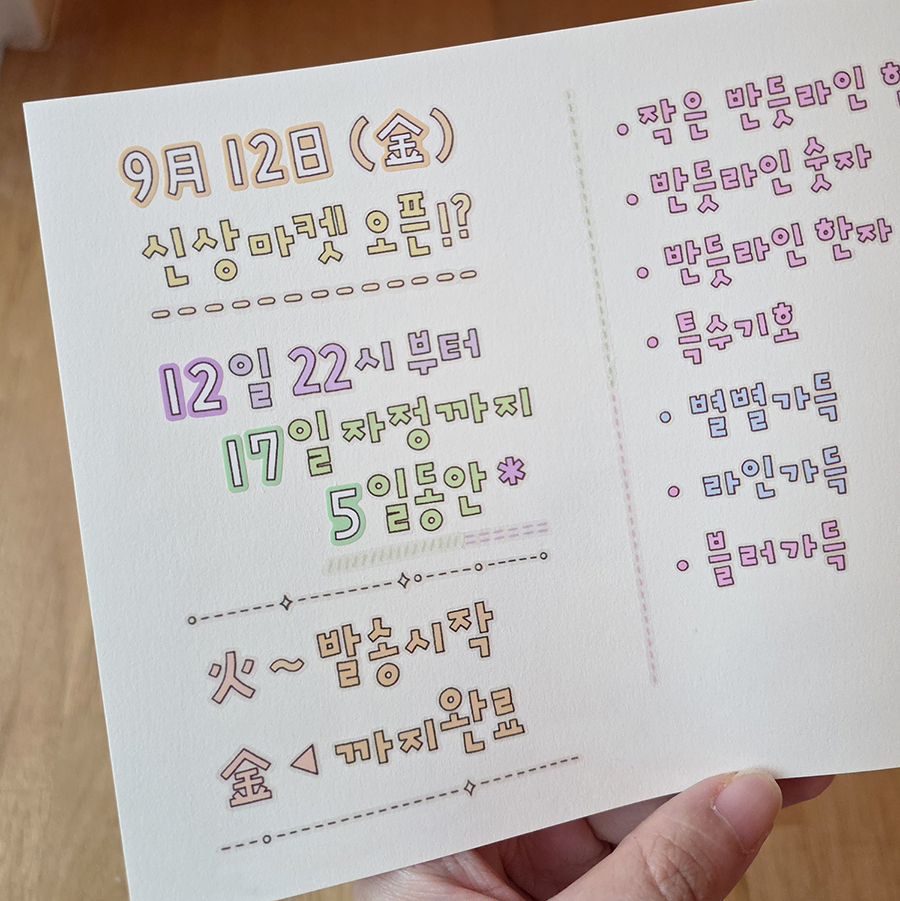 9月 12日 (金)
신상마켓 오픈!?
12일 22시 부터
17일 자정까지
5일동안*
火~ 발송시작
金◀ 까지완료
• 작은 반듯라인
• 반듯라인 숫자
• 반듯라인 한자
• 특수기호
• 별별가득
• 라인가득
• 블러가득